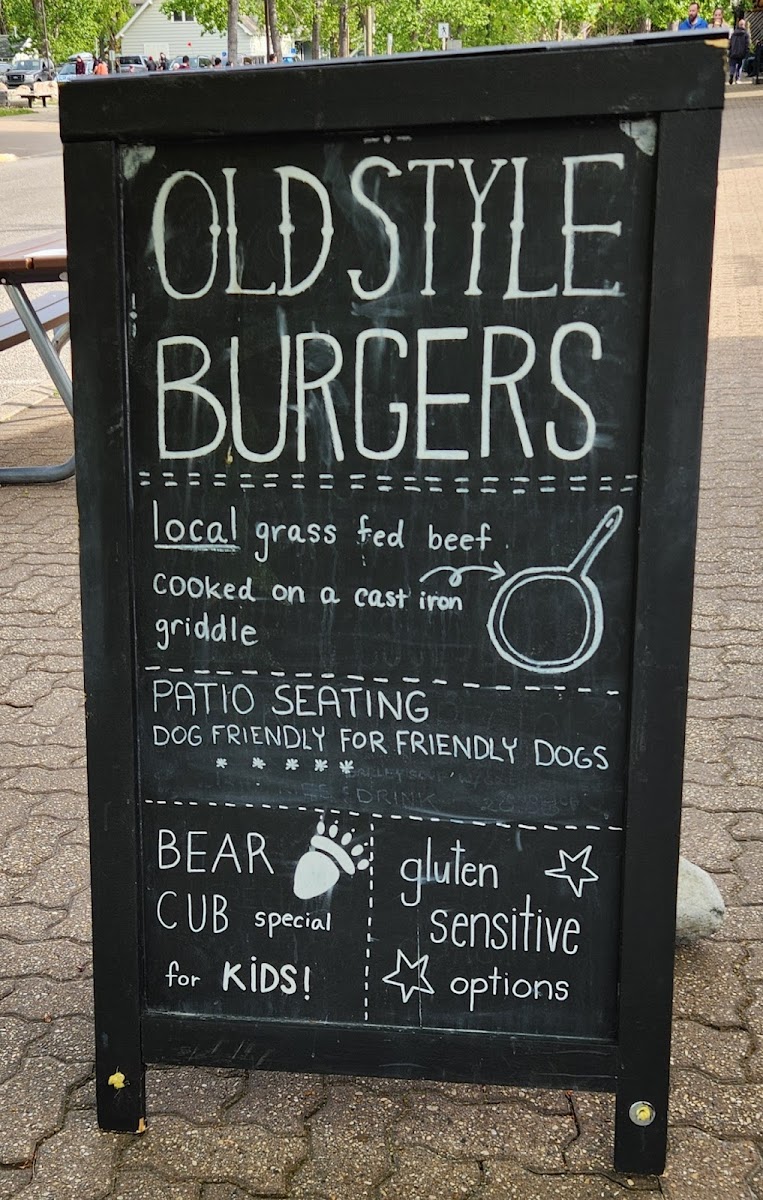 OLD STYLE
BURGERS
local grass fed beef
cooked on a cast iron
griddle
PATIO SEATING
DOG FRIENDLY FOR FRIENDLY DOGS
* * * * *
BEAR
CUB special
for KIDS!
gluten
sensitive
options